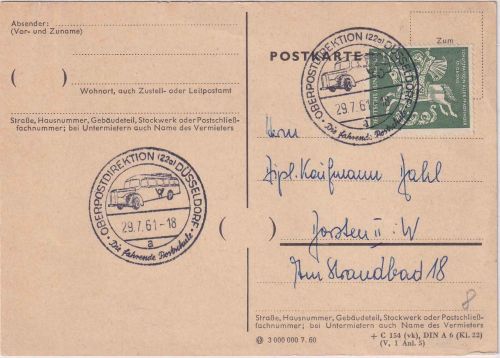 Absender:
(Vor- und Zuname)
Wohnort, auch Zustell- oder Leitpostamt
Straße, Hausnummer, Gebäudeteil, Stockwerk oder Postschließ-
fachnummer; bei Untermietern auch Name des Vermieters
POSTKARTE
Zum
OBERPOSTDIREKTION (22a) DÜSSELDORF
29.7.61
a
Die fahrende Postschule
OBERPOSTDIREKTION (22a) DÜSSELDORF
29.7.61-18
a
Die fahrende Postschule
Herrn
Dipl. Kaufmann Hahl
Dorsten II i. W
Am Strandbad 18
8
Straße, Hausnummer, Gebäudeteil, Stockwerk oder Postschließ-
fachnummer; bei Untermietern auch Name des Vermieters
3 000 000 7. 60
+ C 154 (vk), DIN A 6 (Kl. 22)
(V, 1 Anl. 5)